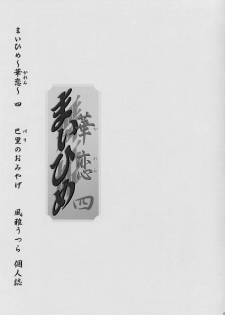 まいひめ～華恋～ 四
巴里のおみやげ
風雅うつら 個人誌
華恋 四
まいひめ